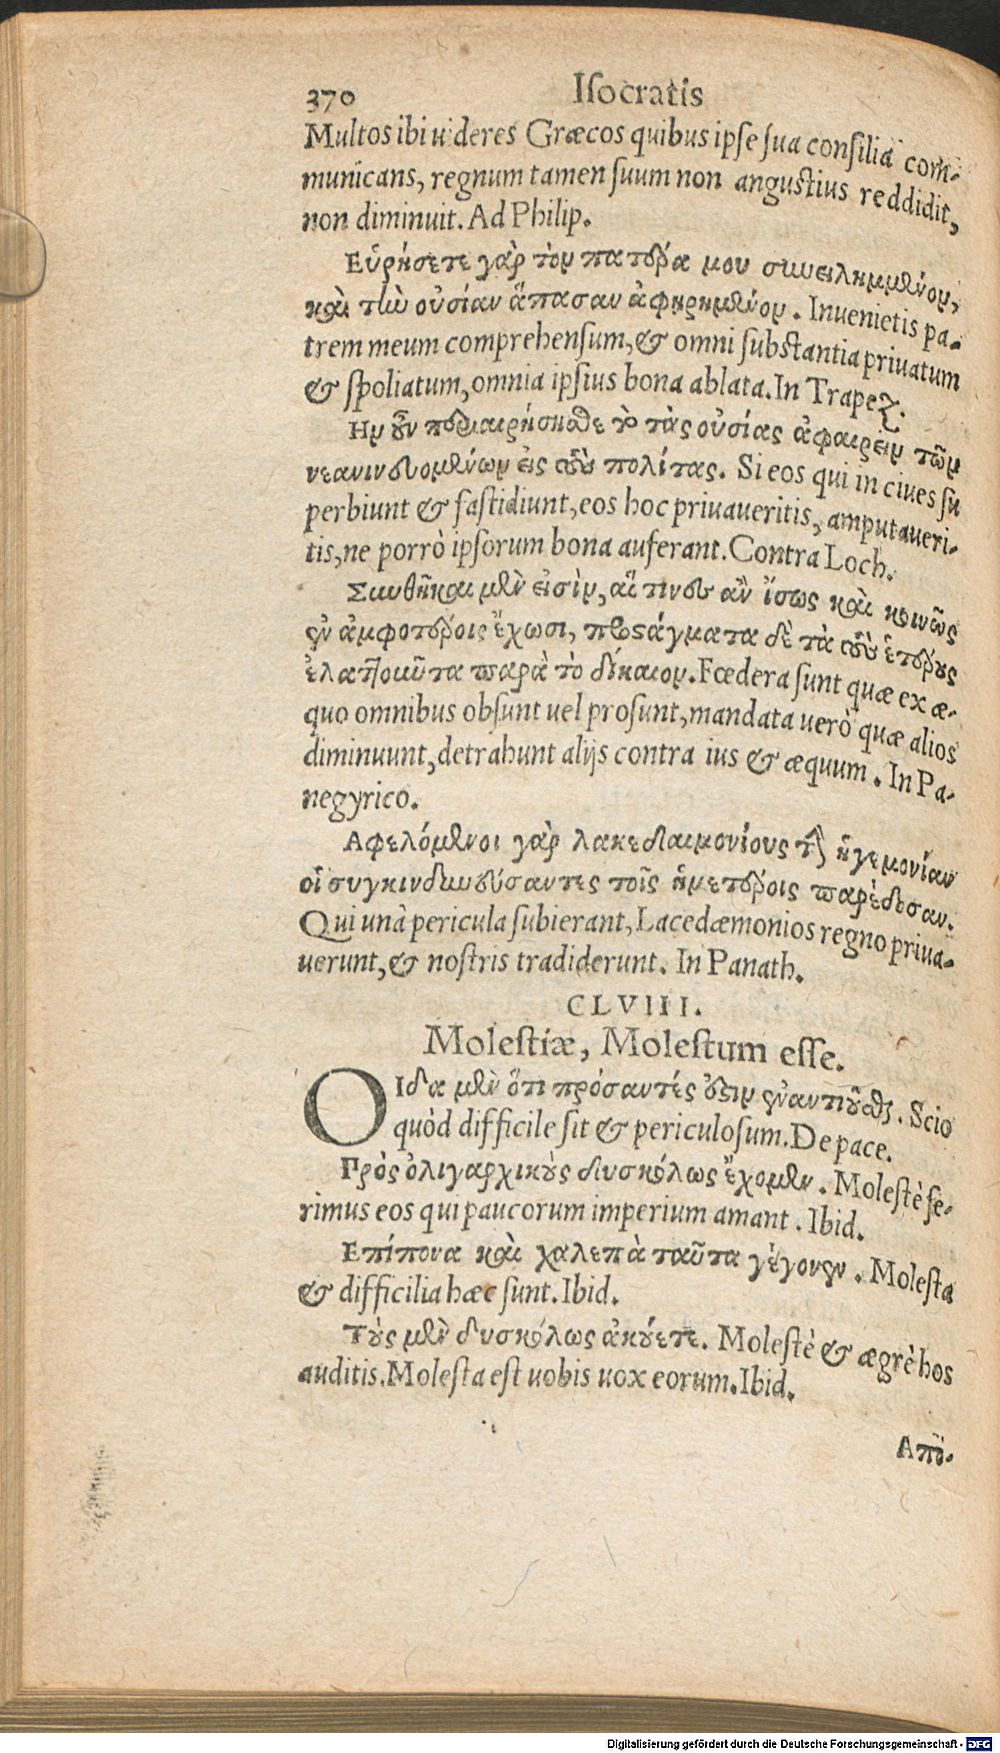 370 Isocratis
Multos ibi uideres Græcos quibus ipse sua consilia com-
municans, regnum tamen suum non angustius reddidit,
non diminuit. Ad Philip.
Εὑρήσετε γὰρ τὸν πατέρα μου συνειλημμένον,
καὶ τὴν οὐσίαν ἅπασαν ἀφῃρημένον. Inuenietis pa-
trem meum comprehensum, & omni substantia priuatum
& spoliatum, omnia ipsius bona ablata. In Trapez.
Ην οὖν περιαιρήσησθε τὸ τὰς οὐσίας ἀφαιρεῖν τῶν
νεανινευομένων εἰς τοὺς πολίτας. Si eos qui in ciues su
perbiunt & fastidiunt, eos hoc priuaueritis, amputaueri-
tis, ne porrò ipsorum bona auferant. Contra Loch.
Συνθῆκαι μὲν εἰσὶν, αἵ τινες ἂν ἴσως καὶ κοινῶς
ἐν ἀμφοτέροις ἔχωσι, προςάγματα δὲ τὰ τοὺς ἑτέρους
ἐλαττοῦντα παρὰ τὸ δίκαιον. Fœdera sunt quæ ex æ-
quo omnibus obsunt uel prosunt, mandata uerò quæ alios
diminuunt, detrahunt alijs contra ius & æquum. In Pa-
negyrico.
Αφελόμενοι γὰρ λακεδαιμονίους τὴν ἡγεμονίαν
οἱ συγκινδυνεύσαντες τοῖς ἡμετέροις παρέδεσαν.
Qui unà pericula subierant, Lacedæmonios regno priua-
uerunt, & nostris tradiderunt. In Panath.
CLVIII.
Molestiæ, Molestum esse.
ΟΙδα μὲν ὅτι πρόσαντές ἐστιν ἐναντιοῦσθαι. Scio
quòd difficile sit & periculosum. De pace.
Πρὸς ὀλιγαρχικοὺς δυσκόλως ἔχομεν. Molestè fe-
rimus eos qui paucorum imperium amant. Ibid.
Επίπονα καὶ χαλεπὰ ταῦτα γέγονεν. Molesta
& difficilia hæc sunt. Ibid.
Τοὺς μὲν δυσκόλως ἀκούετε. Molestè & ægrè hos
auditis. Molesta est uobis uox eorum. Ibid.
Απο-
Digitalisierung gefördert durch die Deutsche Forschungsgemeinschaft - DFG